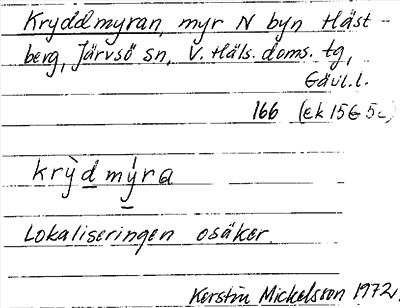 Kryddmyran, myr N byn Häst-
berg, Järvsö sn, V. Häls. doms. tg,
Gävl.l.
166 (ek 15G 5c)
krỳd mýra
Lokaliseringen osäker.
Kerstin Mickelsson 1972.